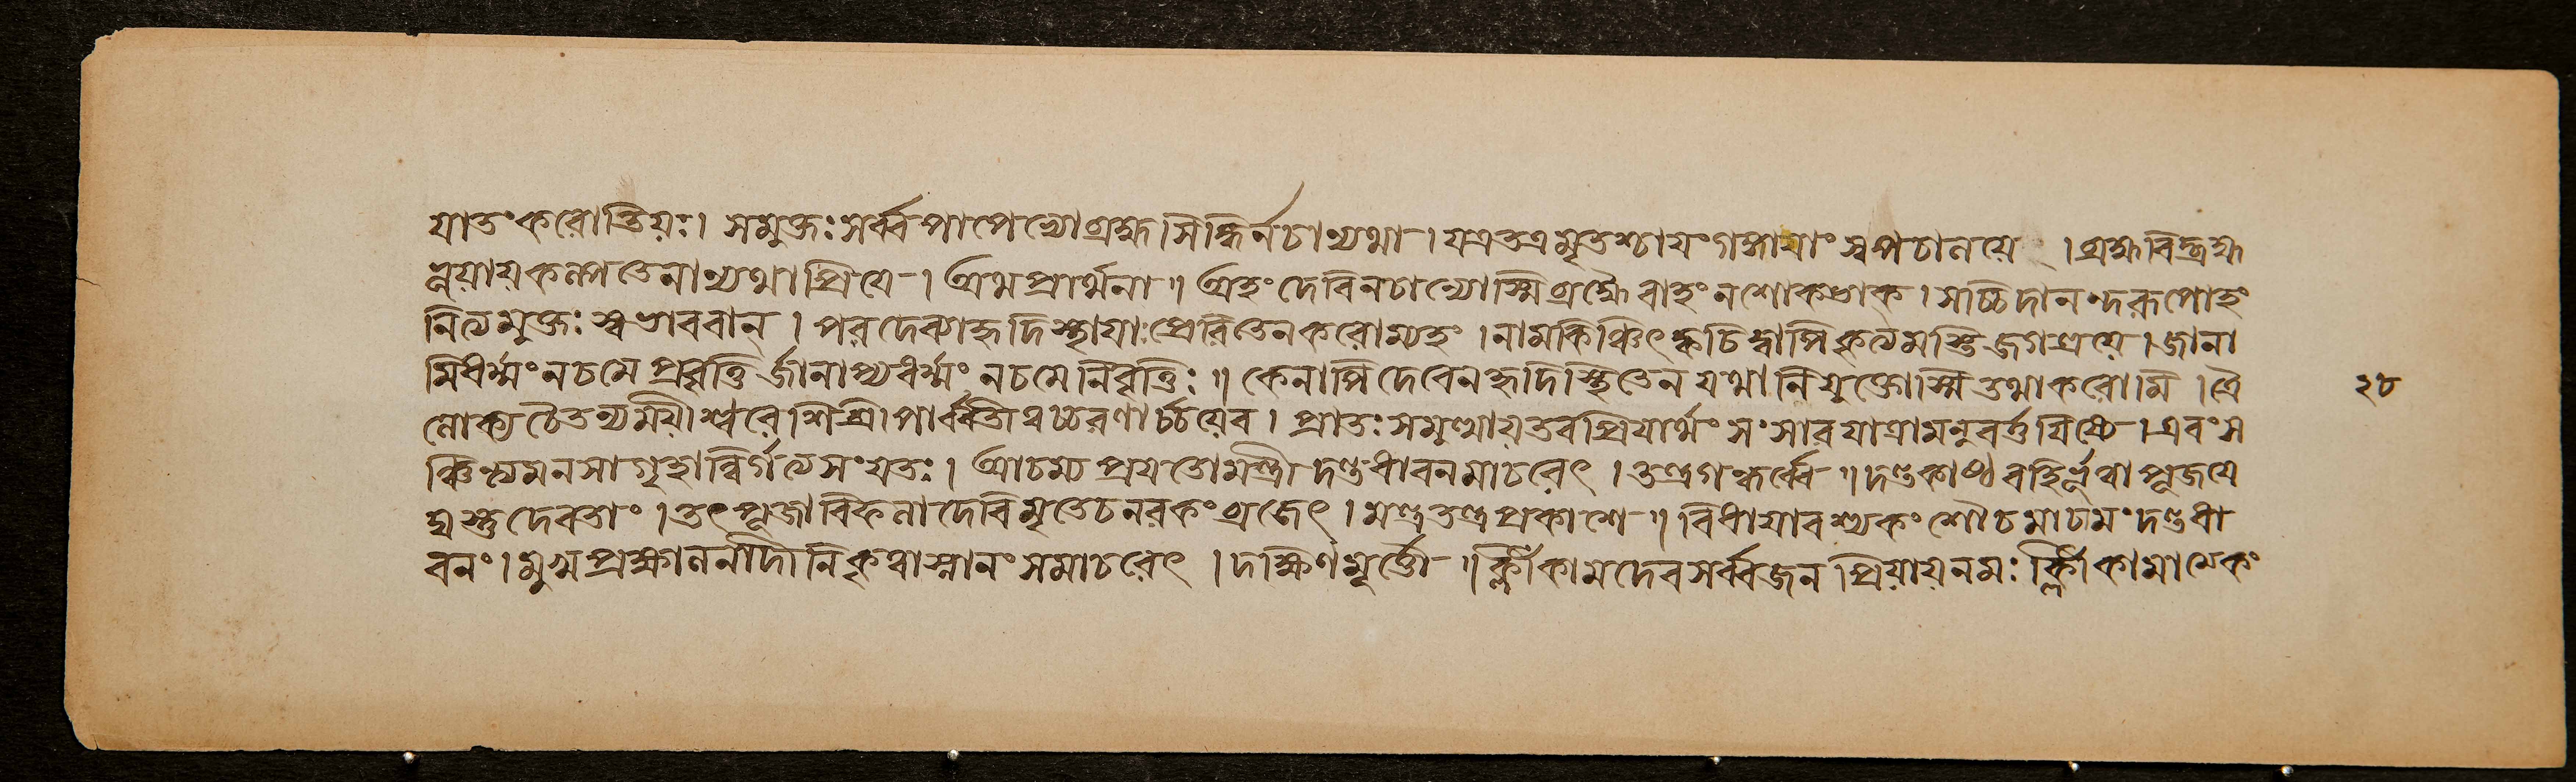 যাতং করোতি যঃ। স মুক্তঃ সর্ব্বপাপেভ্যো ব্রহ্মসিদ্ধির্নচান্যথা। যত্র তত্র মৃতশ্চায়ং গঙ্গায়াং শ্বপচালয়ে । ব্রহ্মবিদ্ব্রহ্ম
লয়ায় কল্পতে নান্যথা প্রিয়ে। অথ প্রার্থনা॥ অহং দেবি নচান্যোস্মি ব্রহ্মৈবাহং ন শোকভাক। সচ্চিদানন্দরূপোহং
নিত্যমুক্তঃ স্বভাববান্। পরদেব্যা হৃদিস্থায়াঃ প্রেরিতেন করোম্যহং। ন মে কিঞ্চিৎ ক্বচিদ্বাপি কৃত্যমস্তি জগত্রয়ে। জানা
মি ধর্ম্মং নচমে প্রবৃত্তির্জানাম্যধর্ম্মং নচমে নিবৃত্তিঃ॥ কেনাপি দেবেন হৃদিস্থিতেন যথা নিযুক্তোস্মি তথা করোমি। ত্রৈ ২৮
লোক্যচৈতন্যময়ীশ্বরেশি শ্রীপার্ব্বতি ত্বচ্চরণার্চ্চয়েব। প্রাতঃ সমুত্থায় তব প্রিয়ার্থং সংসারযাত্রামনুবর্ত্তয়িষ্যে। এবং স
ঞ্চিন্ত্য মনসা গৃহান্নির্গত্য সংযতঃ। আচম্য প্রয়তো মন্ত্রী দন্তধাবনমাচরেৎ। তত্র গন্ধর্ব্বে॥ দন্তকাষ্ঠং বহির্ভূত্বা পূজয়ে
দ্যস্তু দেবতাং। তৎপূজা বিফলা দেবি মৃতে চ নরকং ব্রজেৎ। মন্ত্রতন্ত্রপ্রকাশে॥ বিধায়াবশ্যকং শৌচমাচমং দন্তধা
বনং। মুখপ্রক্ষালনাদীনি কৃত্বা স্নানং সমাচরেৎ। দক্ষিণামূর্ত্তৌ॥ ক্লীঁ কামদেব সর্ব্বজনপ্রিয়ায় নমঃ ক্লীঁ কামাত্মকং